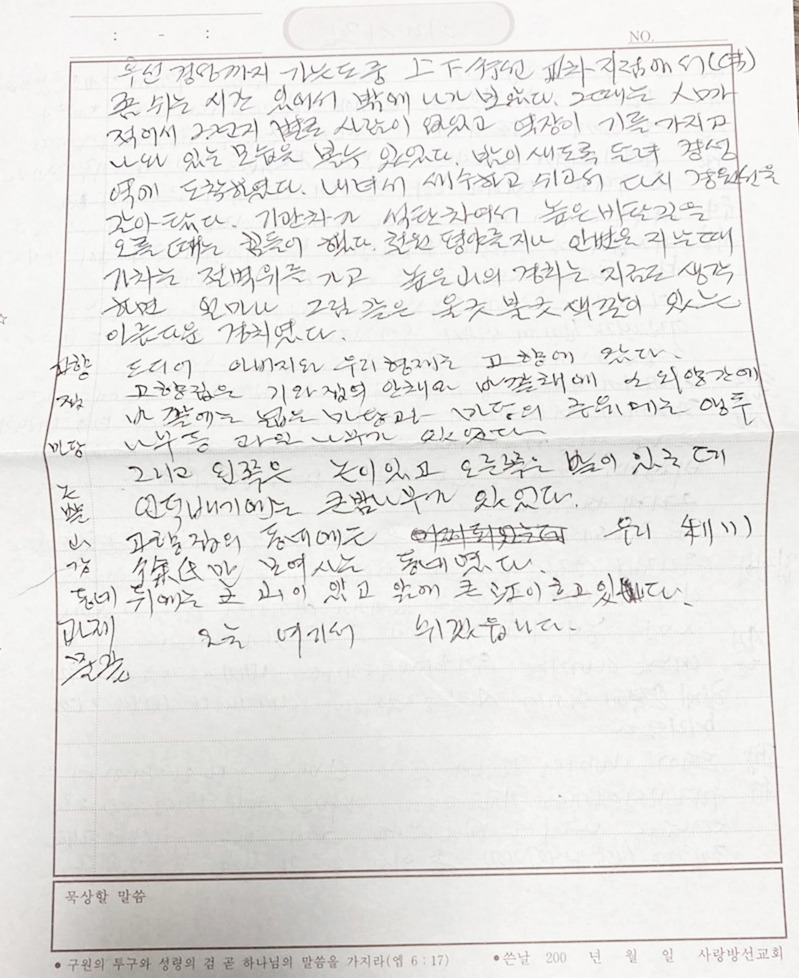 NO.
우선 경성까지 가는 도중 上下行선 교차 지점에서
좀 쉬는 시간 있어서 밖에 나가 보았다. 그때는 人口가
적어서 그런지 별로 사람이 없었고 역장이 기를 가지고
나와 있는 모습을 볼수 있었다. 밤이 새도록 달려 경성
역에 도착하였다. 내려서 세수하고 쉬고서 다시 경원선을
갈아 탔다. 기관차가 석탄차여서 높은 비탈길을
오를 때는 힘들어 했다. 철원 평야를 지나 안변을 지날때
기차는 절벽위를 가고 높은 山의 경치는 지금도 생각
하면 얼마나 그림 같은 울긋 불긋 색깔이 있는
아름다운 경치였다.
고향 드디어 아버지와 우리형제는 고향에 왔다.
집 고향집은 기와집의 안채와 바깥채에 소외양간에
바깥에는 넓은 마당과 마당의 주위에는 앵두
마당 나무등 과일 나무가 있었다.
논 그리고 왼쪽은 논이있고 오른쪽은 밭이 있는데
밭 언덕배기에는 큰밤나무가 있었다.
山 고향집의 동네에는 우리
강 모여사는 동네였다.
동네 뒤에는 큰 山이 있고 앞에 큰 江이 흐르고 있다.
과제 오늘 여기서 쉬겠습니다.
묵상할 말씀
● 구원의 투구와 성령의 검 곧 하나님의 말씀을 가지라(엡 6 : 17) ● 쓴날 200 년 월 일 사랑방선교회